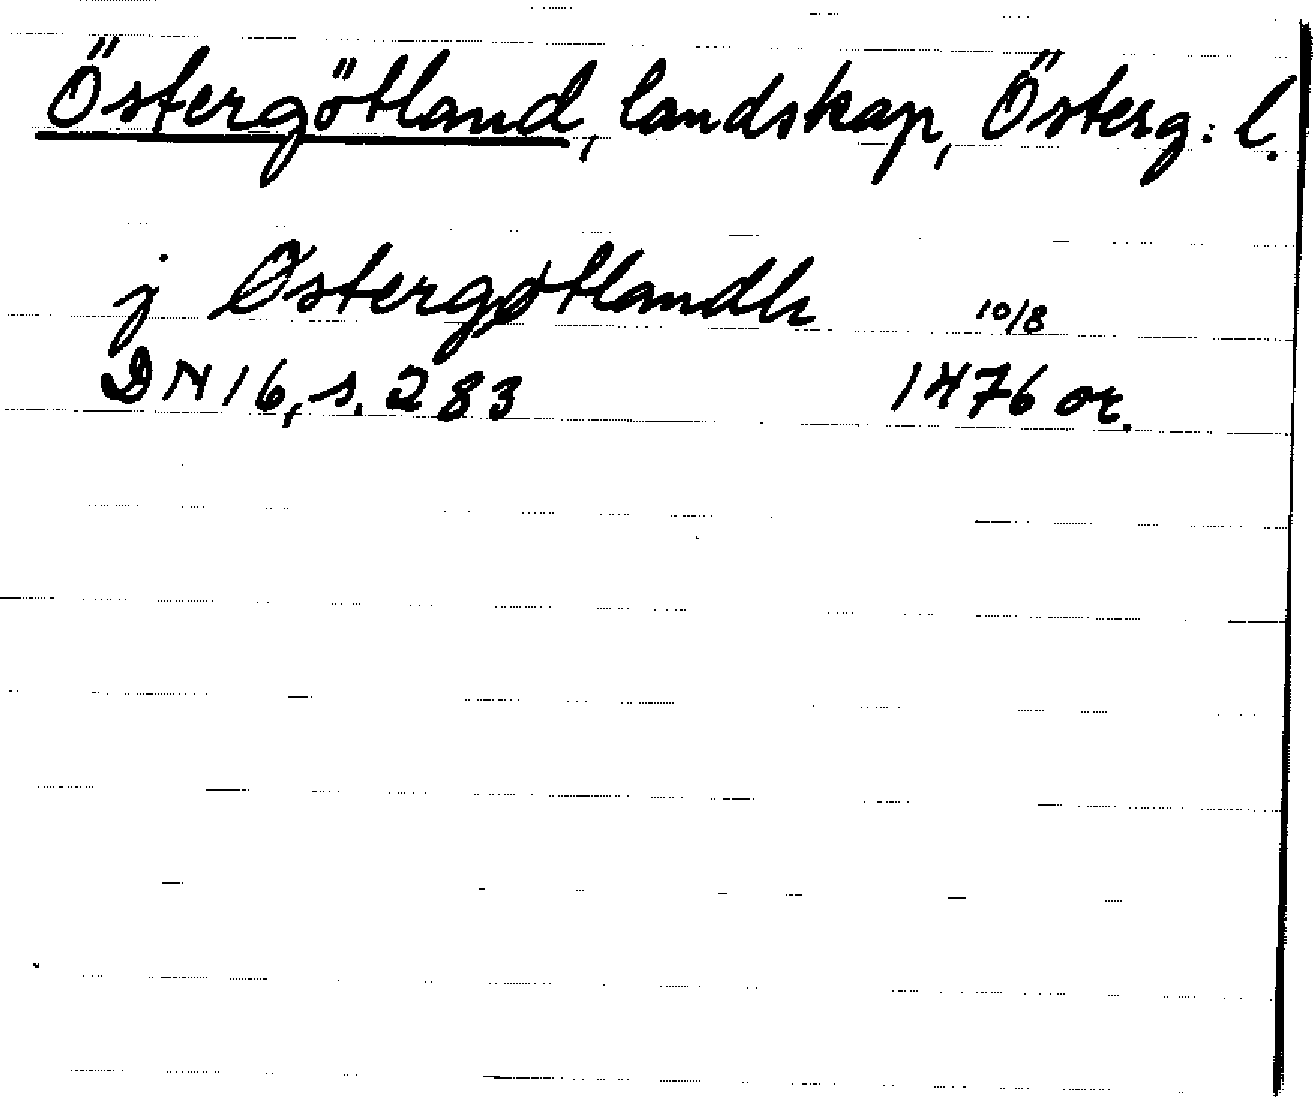 Östergötland, landskap, Österg: l.
j Østergøtlandh 10/8
DN 16, s. 283 1476 or.